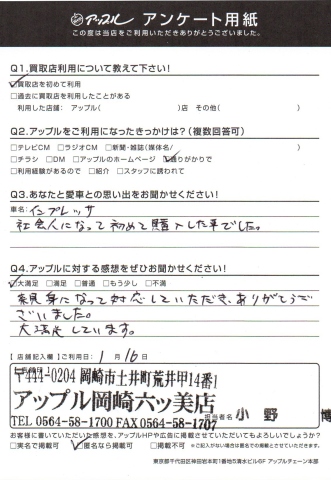 アップル アンケート用紙
この度は当店をご利用いただきありがとうございました。
Q1.買取店利用について教えて下さい!
☑買取店を初めて利用
□過去に買取店を利用したことがある
利用した店舗: アップル( )店 その他( )
Q2.アップルをご利用になったきっかけは?(複数回答可)
□テレビCM □ラジオCM □新聞・雑誌(媒体名/ )
□チラシ □DM □アップルのホームページ ☑通りがかりで
□利用経験があるので □紹介 □スタッフに誘われて
Q3.あなたと愛車との思い出をお聞かせください!
車名: インプレッサ
社会人になって初めて購入した車でした。
Q4.アップルに対する感想をぜひお聞かせください!
☑大満足 □満足 □普通 □もう少し □不満
親身になって対応していただき、ありがとうご
ざいました。
大満足しています。
【店舗記入欄】【ご利用日: 1月16日
〒444-0204 岡崎市土井町荒井甲14番1
アップル岡崎六ッ美店
TEL 0564-58-1700 FAX 0564-58-1707
担当者名 小野 博
お客様に書いていただいた感想を、アップルHPや広告に掲載させていただいてもよろしいでしょうか?
□実名で掲載可 ☑匿名なら掲載可 □掲載不可 ※ご記入がない場合は匿名での掲載とさせていただきます。
東京都千代田区神田岩本町1番地5清水ビル6F アップルチェーン本部